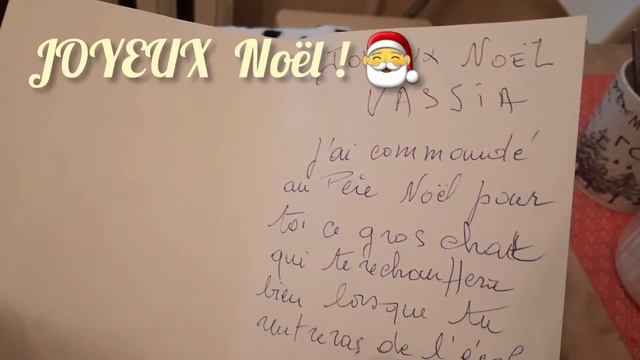 JOYEUX Noël ! 🎅
NOËL
VASSIA
J'ai commandé
au Père Noël pour
toi ce gros chat
qui te rechauffera
bien lorsque tu
rentreras de l'